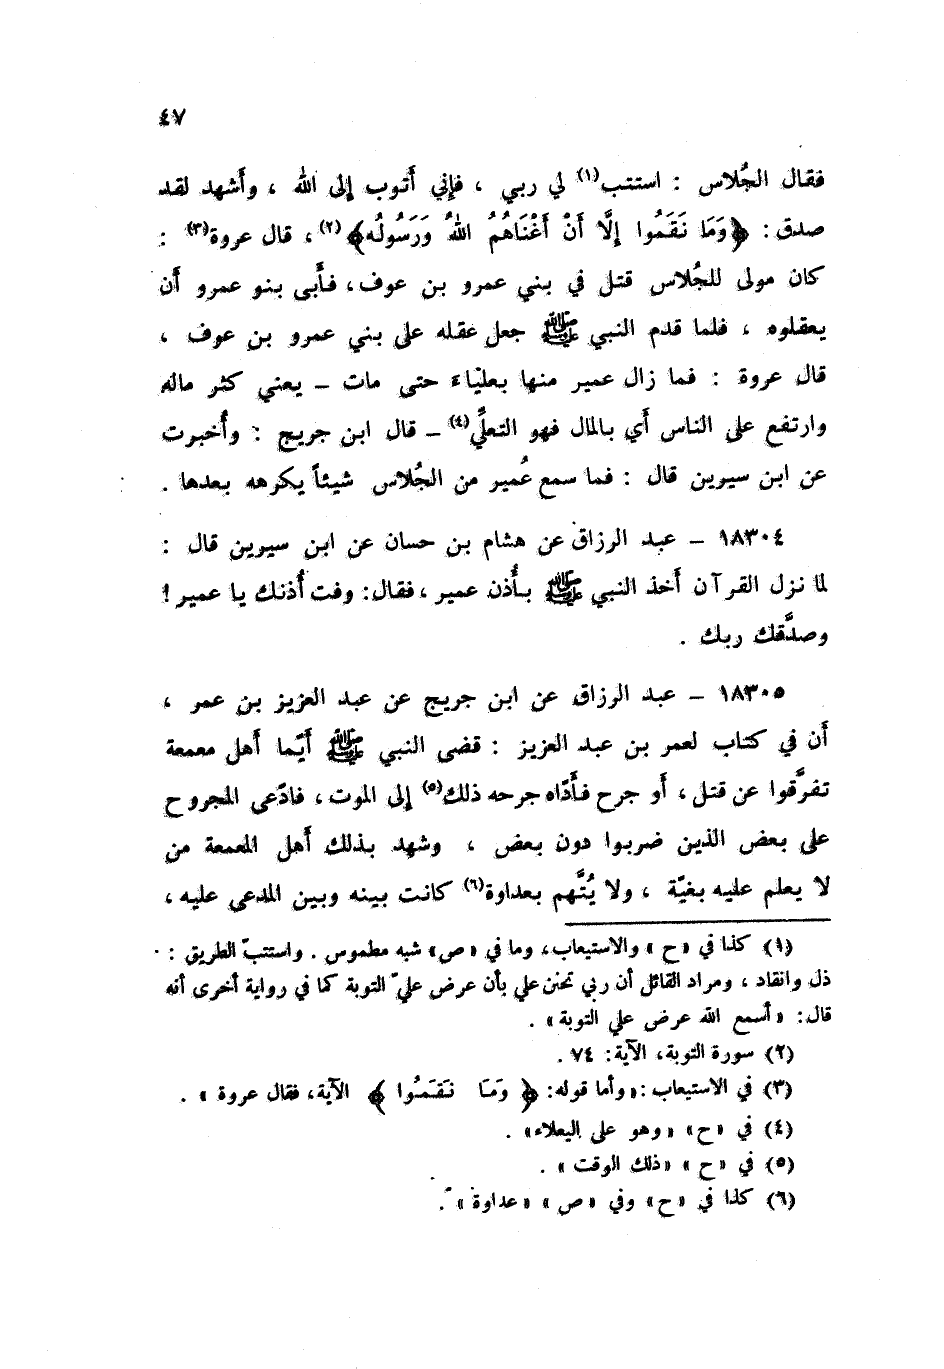 ٤٧
فقال الجُلاس : استتب(١) لي ربي ، فإني أَتوب إلى الله ، وأَشهد لقد
صدق : ﴿وَمَا نَقَمُوا إِلَّا أَنْ أَغْنَاهُمُ اللهُ وَرَسُولُه﴾(٢) ، قال عروة(٣) :
كان مولى للجُلاس قتل في بني عمرو بن عوف ، فأَبى بنو عمرو أَن
يعقلوه ، فلما قدم النبي ﷺ جعل عقله على بني عمرو بن عوف ،
قال عروة : فما زال عمير منها بعليْاء حتى مات – يعني كثر ماله
وارتفع على الناس أَي بالمال فهو التعلِّي(٤) – قال ابن جريج : وأُخبرت
عن ابن سيرين قال : فما سمع عُمير من الجُلاس شيئاً يكرهه بعدها .
١٨٣٠٤ – عبد الرزاق عن هشام بن حسان عن ابن سيرين قال :
لما نزل القرآن أَخذ النبي ﷺ بأُذن عمير ، فقال : وفت أُذنك يا عمير !
وصدَّقك ربك .
١٨٣٠٥ – عبد الرزاق عن ابن جريج عن عبد العزيز بن عمر ،
أَن في كتاب لعمر بن عبد العزيز : قضى النبي ﷺ أَيّما أَهل معمعة
تفرَّقوا عن قتل ، أَو جرح فأَدّاه جرحه ذلك(٥) إلى الموت ، فادّعى المجروح
على بعض الذين ضربوا دون بعض ، وشهد بذلك أَهل المعمعة من
لا يعلم عليه بغيّة ، ولا يُتَّهم بعداوة(٦) كانت بينه وبين المدعي عليه ،
(١) كذا في «ح» والاستيعاب، وما في «ص» شبه مطموس . واستتبّ الطريق :
ذل وانقاد ، ومراد القائل أن ربي تحنن علي بأن عرض عليّ التوبة كما في رواية أخرى أنه
قال : «أسمع الله عرض علي التوبة» .
(٢) سورة التوبة، الآية: ٧٤ .
(٣) في الاستيعاب : «وأما قوله: ﴿ وَمَا نَقَمُوا ﴾ الآية، فقال عروة » .
(٤) في «ح» «وهو على اليعلاء» .
(٥) في «ح» «ذلك الوقت» .
(٦) كذا في «ح» وفي «ص» «عداوة» .